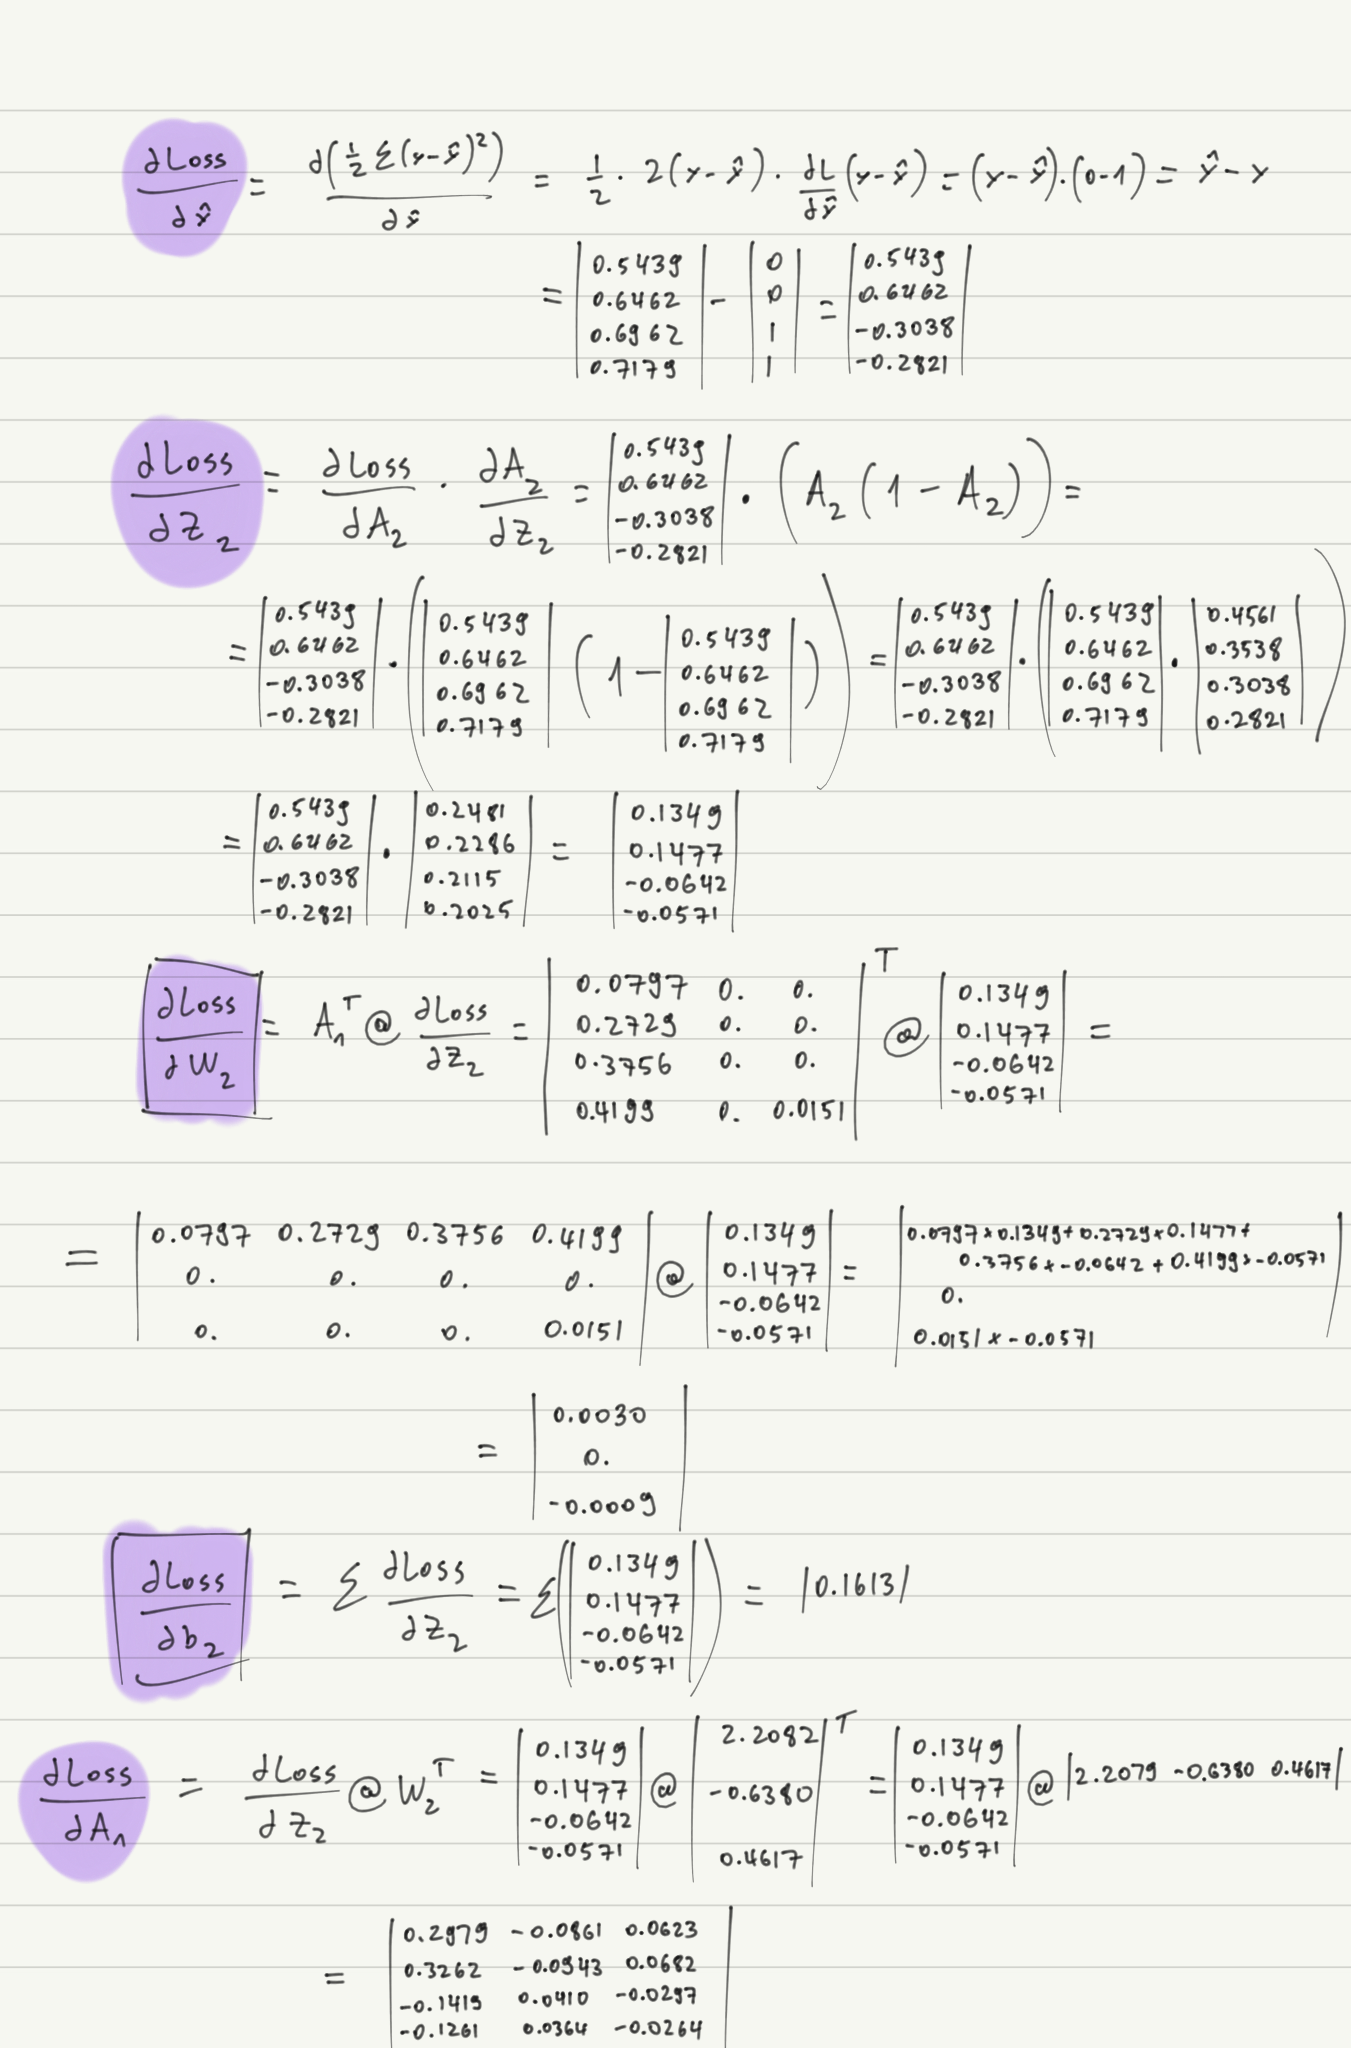 ∂Loss/∂ŷ = ∂(½ Σ(y-ŷ)²)/∂ŷ = 1/2 · 2(y-ŷ) · ∂L/∂ŷ (y-ŷ) = (y-ŷ)·(0-1) = ŷ - y
= |0.5439 0.6462 0.6962 0.7179| - |0 0 1 1| = |0.5439 0.6462 -0.3038 -0.2821|
∂Loss/∂Z₂ = ∂Loss/∂A₂ · ∂A₂/∂Z₂ = |0.5439 0.6462 -0.3038 -0.2821| · (A₂(1-A₂)) =
= |0.5439 0.6462 -0.3038 -0.2821| · (|0.5439 0.6462 0.6962 0.7179| (1 - |0.5439 0.6462 0.6962 0.7179|)) = |0.5439 0.6462 -0.3038 -0.2821| · (|0.5439 0.6462 0.6962 0.7179| · |0.4561 0.3538 0.3038 0.2821|)
= |0.5439 0.6462 -0.3038 -0.2821| · |0.2481 0.2286 0.2115 0.2025| = |0.1349 0.1477 -0.0642 -0.0571|
∂Loss/∂W₂ = A₁ᵀ @ ∂Loss/∂Z₂ = |0.0797 0. 0. 0.2729 0. 0. 0.3756 0. 0. 0.4199 0. 0.0151|ᵀ @ |0.1349 0.1477 -0.0642 -0.0571| =
= |0.0797 0.2729 0.3756 0.4199 0. 0. 0. 0. 0. 0. 0. 0.0151| @ |0.1349 0.1477 -0.0642 -0.0571| = |0.0797×0.1349+0.2729×0.1477+ 0.3756×-0.0642+0.4199×-0.0571 0. 0.0151×-0.0571|
= |0.0030 0. -0.0009|
∂Loss/∂b₂ = Σ ∂Loss/∂Z₂ = Σ(|0.1349 0.1477 -0.0642 -0.0571|) = |0.1613|
∂Loss/∂A₁ = ∂Loss/∂Z₂ @ W₂ᵀ = |0.1349 0.1477 -0.0642 -0.0571| @ |2.2082 -0.6380 0.4617|ᵀ = |0.1349 0.1477 -0.0642 -0.0571| @ |2.2079 -0.6380 0.4617|
= |0.2979 -0.0861 0.0623
0.3262 -0.0943 0.0682
-0.1419 0.0410 -0.0297
-0.1261 0.0364 -0.0264|